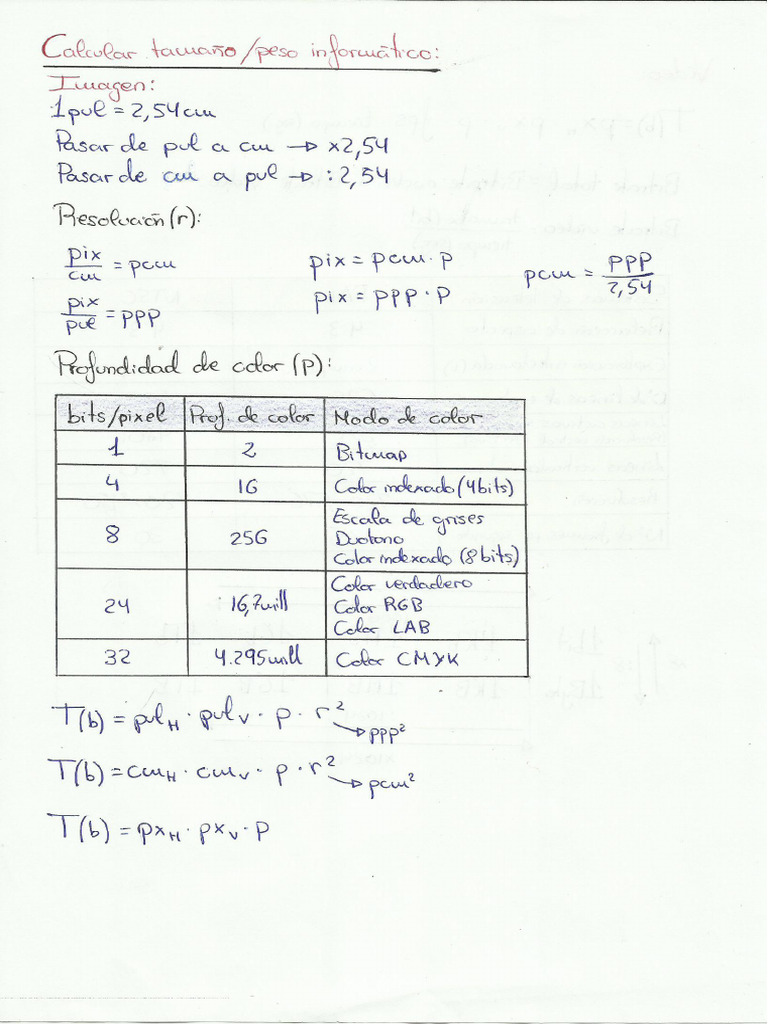 Calcular tamaño/peso informático:
Imagen:
1 pul = 2,54 cm
Pasar de pul a cm → x2,54
Pasar de cm a pul → : 2,54
Resolución (r):
pix/cm = pcm
pix/pul = ppp
pix = pcm · p
pix = ppp · p
pcm = ppp/2,54
Profundidad de color (p):
bits/pixel Prof. de color Modo de color
1 2 Bitmap
4 16 Color indexado (4 bits)
8 256 Escala de grises
Duotono
Color indexado (8 bits)
24 16,7 mill Color verdadero
Color RGB
Color LAB
32 4.295 mill Color CMYK
T(b) = pul_H · pul_V · p · r² → ppp²
T(b) = cm_H · cm_V · p · r² → pcm²
T(b) = px_H · px_V · p